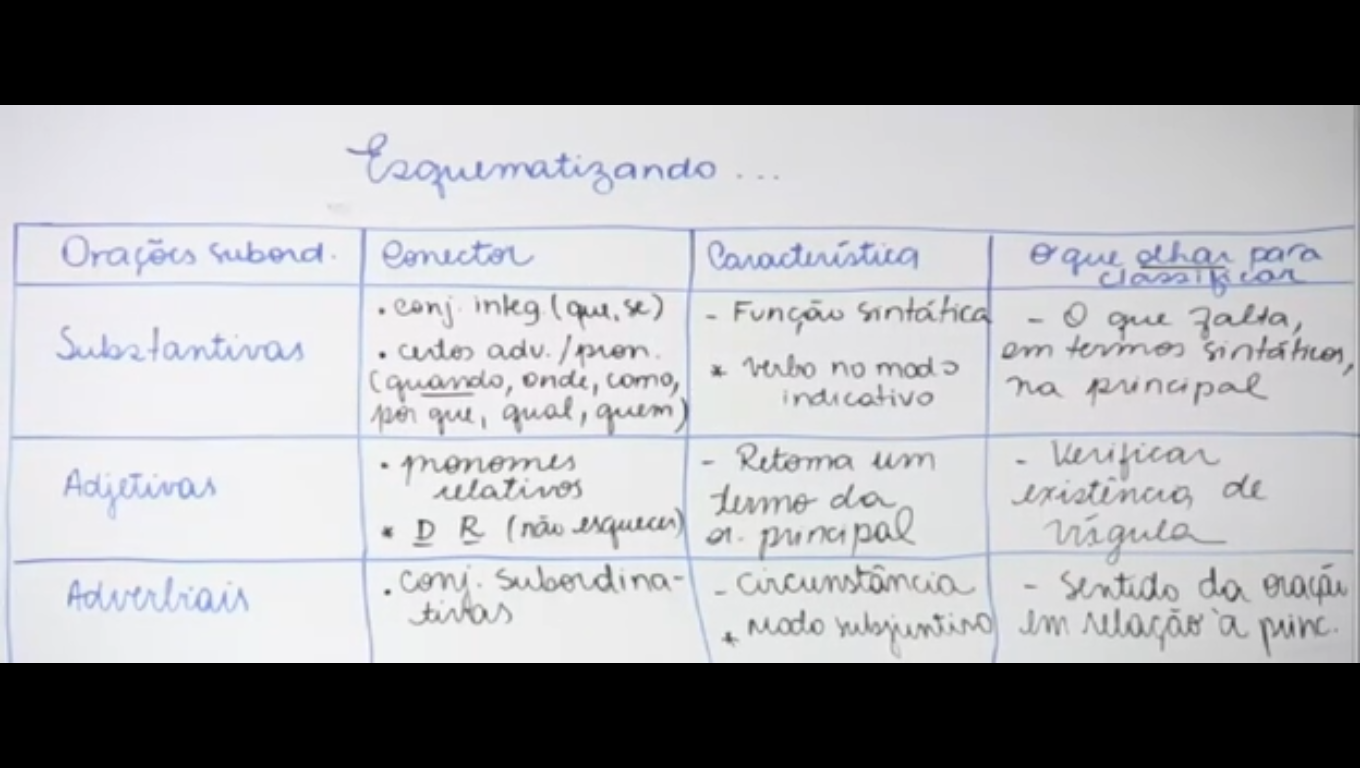 Esquematizando...
Orações subord.
Conector
Característica
O que olhar para
classificar
Substantivas
• conj. integ. (que, se)
• certos adv. / pron.
(quando, onde, como,
por que, qual, quem)
- Função sintática
* verbo no modo
indicativo
- O que falta,
em termos sintáticos,
na principal
Adjetivas
• pronomes
relativos
* D R (não esquecer)
- Retoma um
termo da
or. principal
- Verificar
existência de
vírgula
Adverbiais
• conj. subordina-
tivas
- Circunstância
* Modo subjuntivo
- Sentido da oração
em relação à princ.